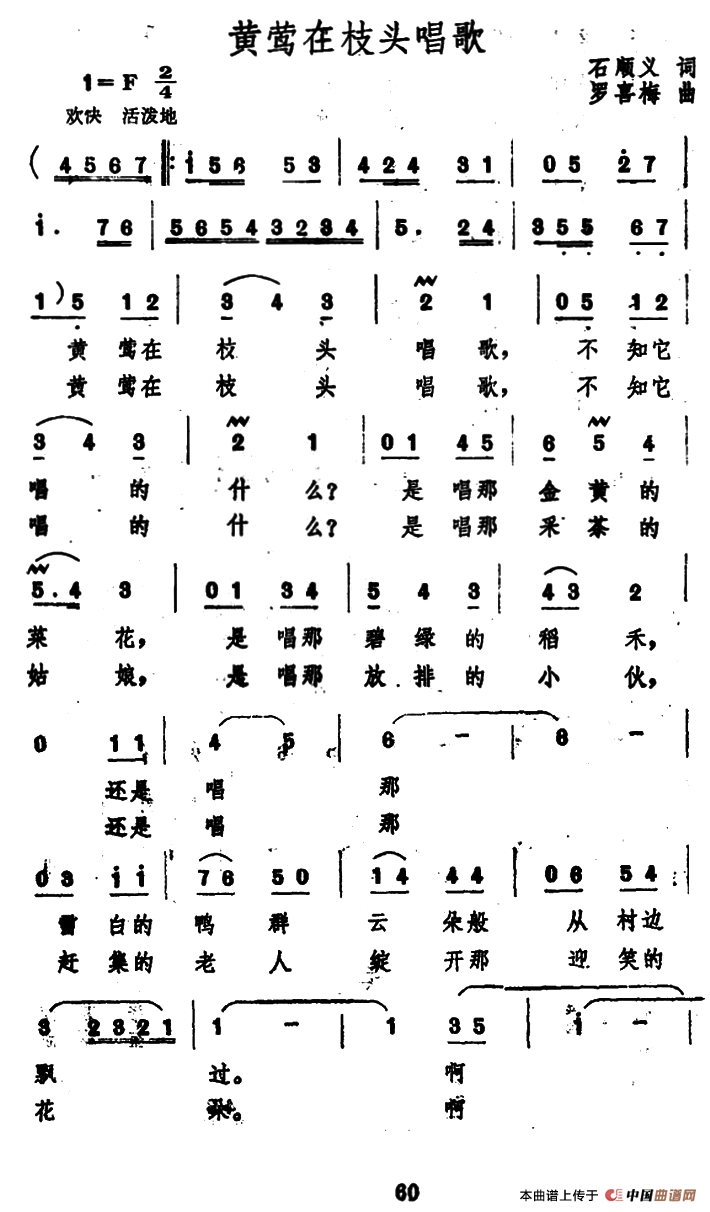 黄莺在枝头唱歌
1=F 2/4
石顺义 词
罗喜梅 曲
欢快 活泼地
( 4567 ‖: i56 53 | 424 31 | 05 27 |
i. 76 | 5654 3234 | 5. 24 | 355 67 |
1) 5 12 | 3 4 3 | 2 1 | 05 12 |
黄 莺在 枝 头 唱 歌, 不 知它
黄 莺在 枝 头 唱 歌, 不 知它
3 4 3 | 2 1 | 01 45 | 6 5 4 |
唱 的 什 么? 是 唱那 金 黄的
唱 的 什 么? 是 唱那 采 茶的
5.4 3 | 01 34 | 5 4 3 | 43 2 |
菜 花, 是 唱那 碧绿的 稻 禾,
姑 娘, 是 唱那 放排的 小 伙,
0 11 | 4 5 | 6 - | 6 - |
还是 唱 那
还是 唱 那
03 ii | 76 50 | 14 44 | 06 54 |
雪 白的 鸭 群 云 朵般 从 村边
赶 集的 老 人 绽 开那 迎 笑的
3 2321 | 1 - | 1 35 | i - |
飘 过。 啊
花 朵。 啊
60
本曲谱上传于 中国曲谱网